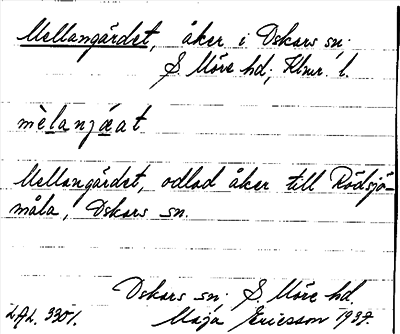 Mellangärdet, åker i Oskars sn;
S. Möre hd, Klmr. l.
mèlanjæat
Mellangärdet, odlad åker till Rödsjö-
måla, Oskars sn.
Oskars sn; S. Möre hd.
LAL. 3301. Maja Ericsson 1937.